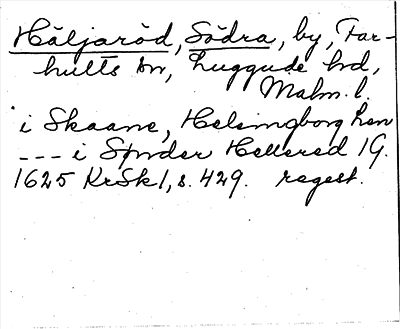 Häljaröd, Södra, by, Far-
hults sn, Luggude hd,
Malm. l.
i Skaane, Helsingborg Len
--- i Synder Hellerød 1 G.
1625 KrSk 1, s. 429. regest.